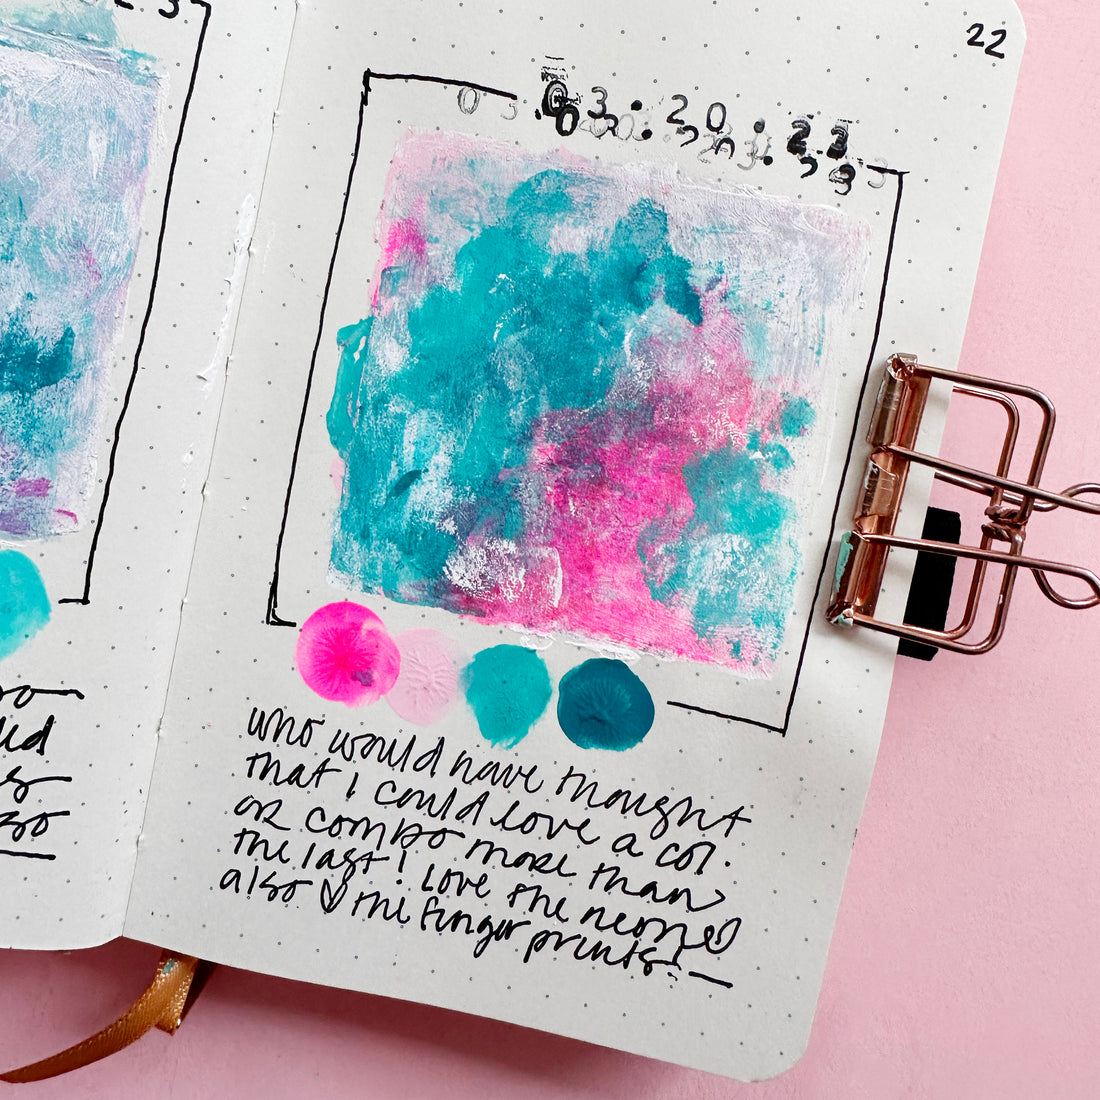 22
03.20.23
who would have thought
that I could love a col.
or combo more than
the last! Love the neon
also ♡ the finger prints!